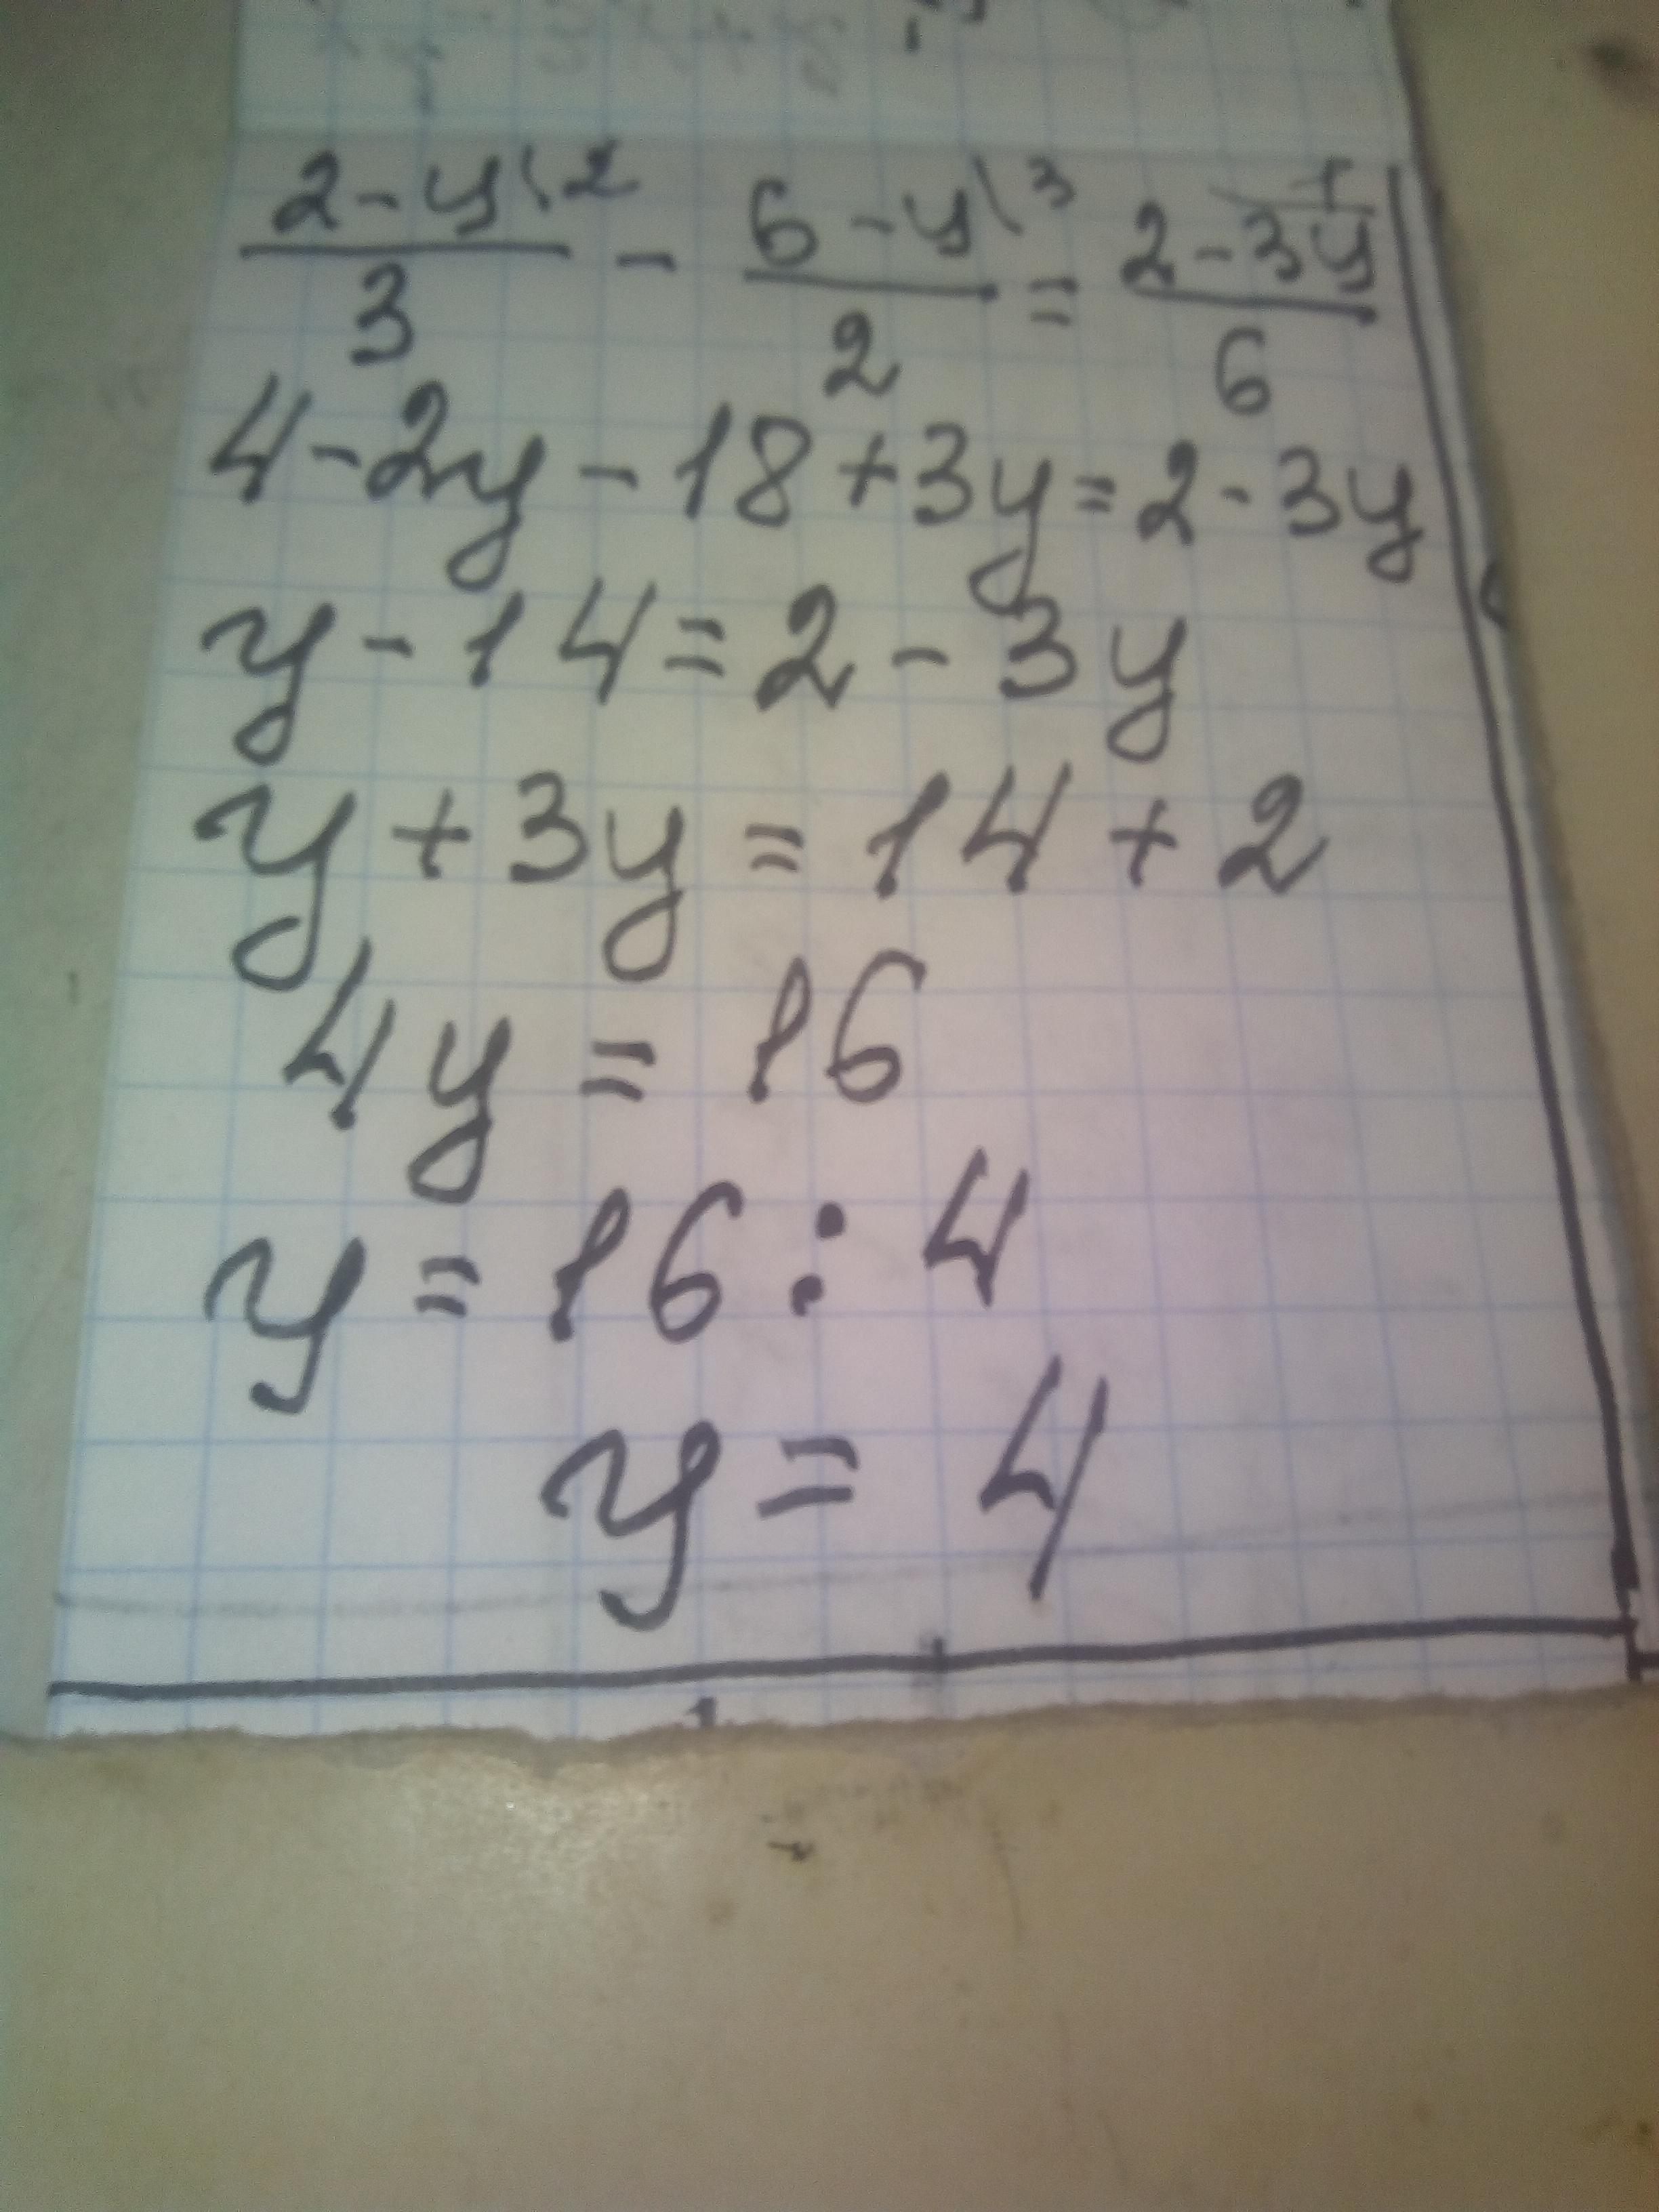 2-y\2/3 - 6-y\3/2 = 2-3y/6
4-2y-18+3y=2-3y
y-14=2-3y
y+3y=14+2
4y=16
y=16:4
y=4